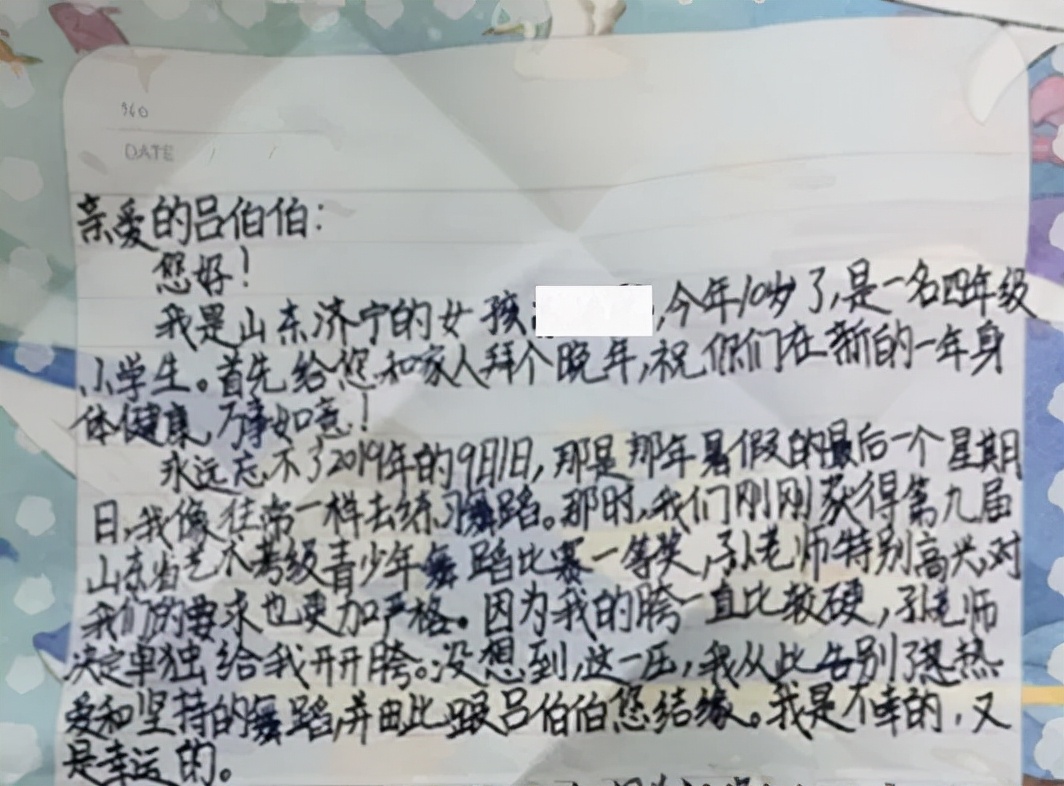 NO
DATE / /
亲爱的吕伯伯：
您好！
我是山东济宁的女孩，今年10岁了，是一名四年级
小学生。首先给您和家人拜个晚年，祝你们在新的一年身
体健康，万事如意！
永远忘不了2019年的9月1日，那是那年暑假的最后一个星期
日，我像往常一样去练习舞蹈。那时，我们刚刚获得第九届
山东省艺术考级青少年舞蹈比赛一等奖，孙老师特别高兴，对
我们的要求也更加严格。因为我的胯一直比较硬，孙老师
决定单独给我开开胯。没想到，这一压，我从此告别了热
爱和坚持的舞蹈，并由此跟吕伯伯您结缘。我是不幸的，又
是幸运的。